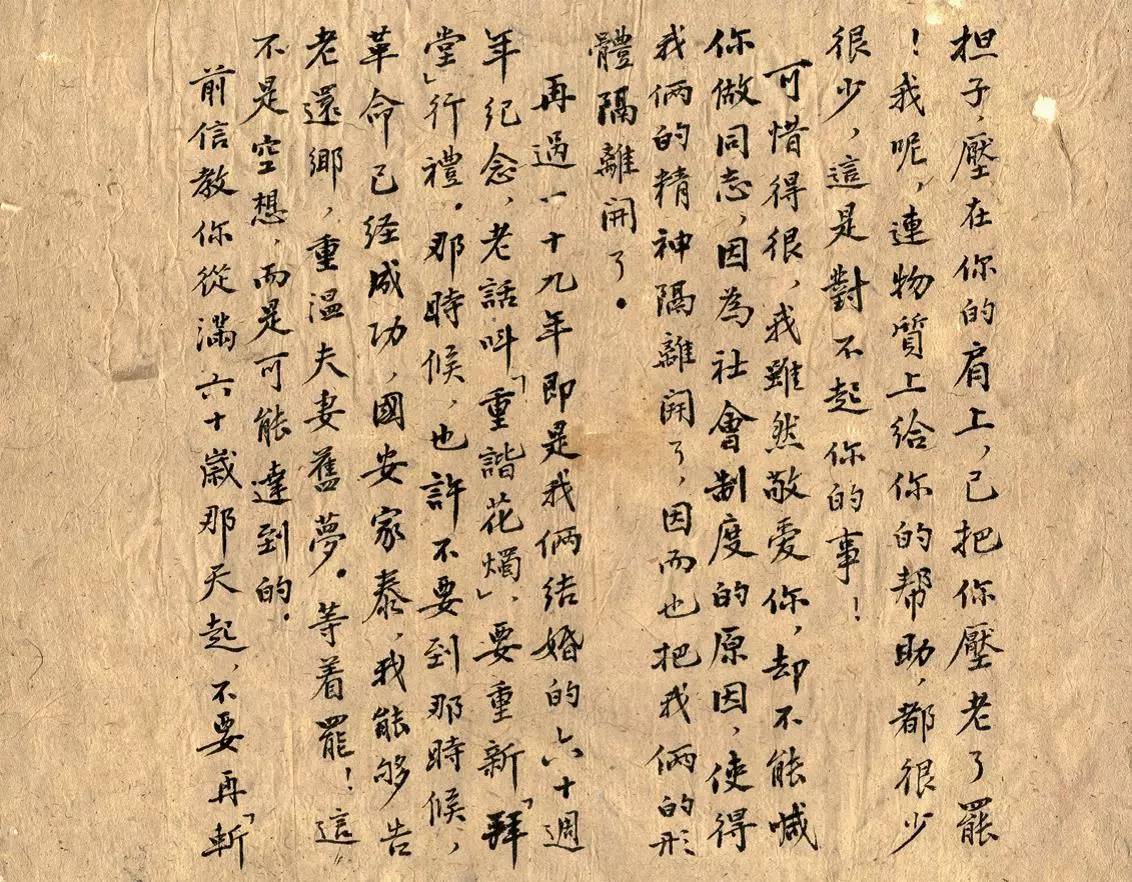 担子，壓在你的肩上，已把你壓老了罷
！我呢，連物質上給你的帮助，都很少
很少，這是對不起你的事！
可惜得很，我雖然敬爱你，却不能喊
你做同志，因為社會制度的原因，使得
我俩的精神隔離開了，因而也把我俩的形
體隔離開了。
再過一十九年即是我俩结婚的六十週
年纪念，老話呌「重諧花燭」，要重新「拜
堂」行禮。那時候，也許不要到那時候，
革命已经成功，國安家泰，我能够告
老還鄉，重温夫妻舊夢。等着罷！這
不是空想，而是可能達到的。
前信教你從滿六十歲那天起，不要再「斬